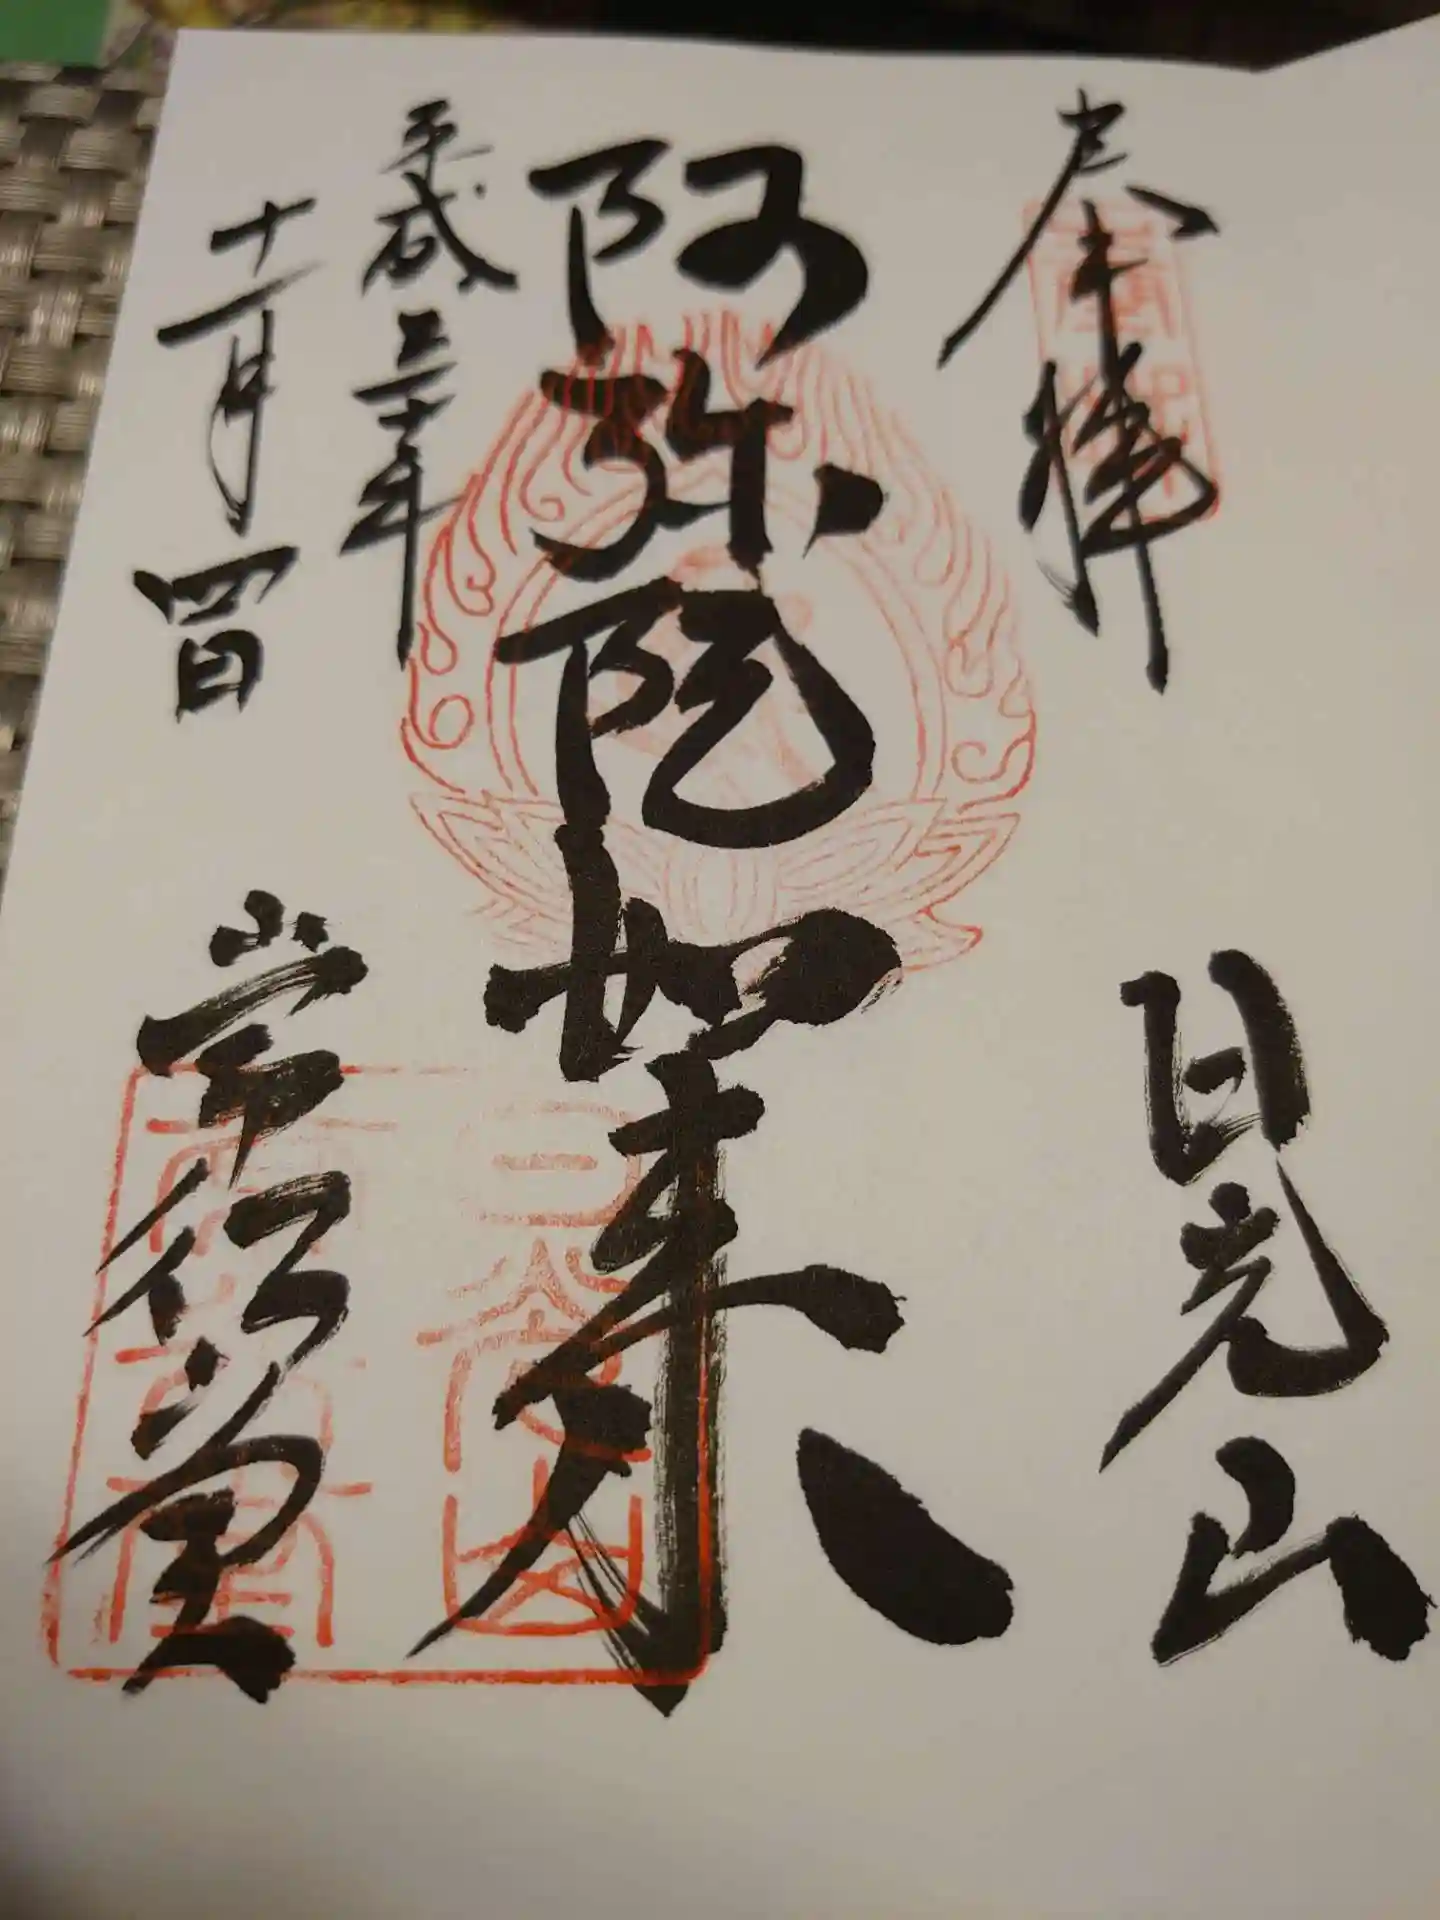 奉拝
日光山
阿弥陀如来
平成三十年
十一月四日
常行堂
日光山